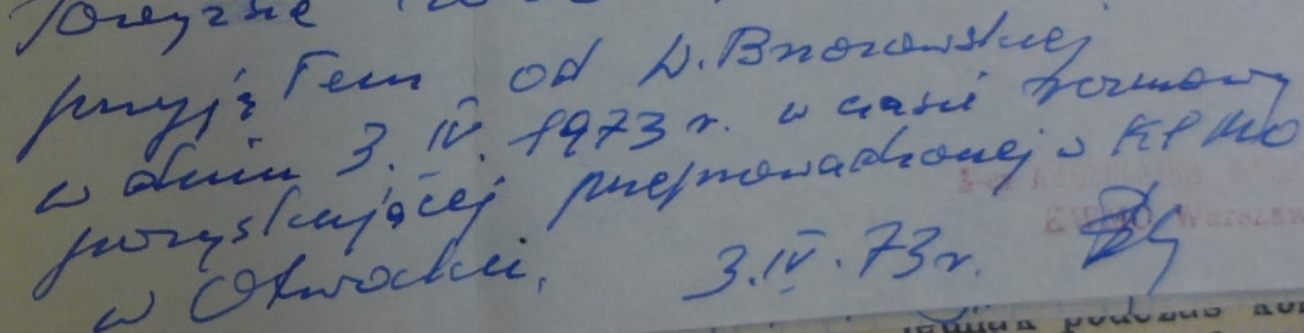 Powyższe
przyjąłem od D. Brzozowskiej
w dniu 3.IV.1973 r. w czasie rozmowy
pozyskującej przeprowadzonej w KPMO
w Otwocku.
3.IV.73r.
Warszaw
jednak podczas